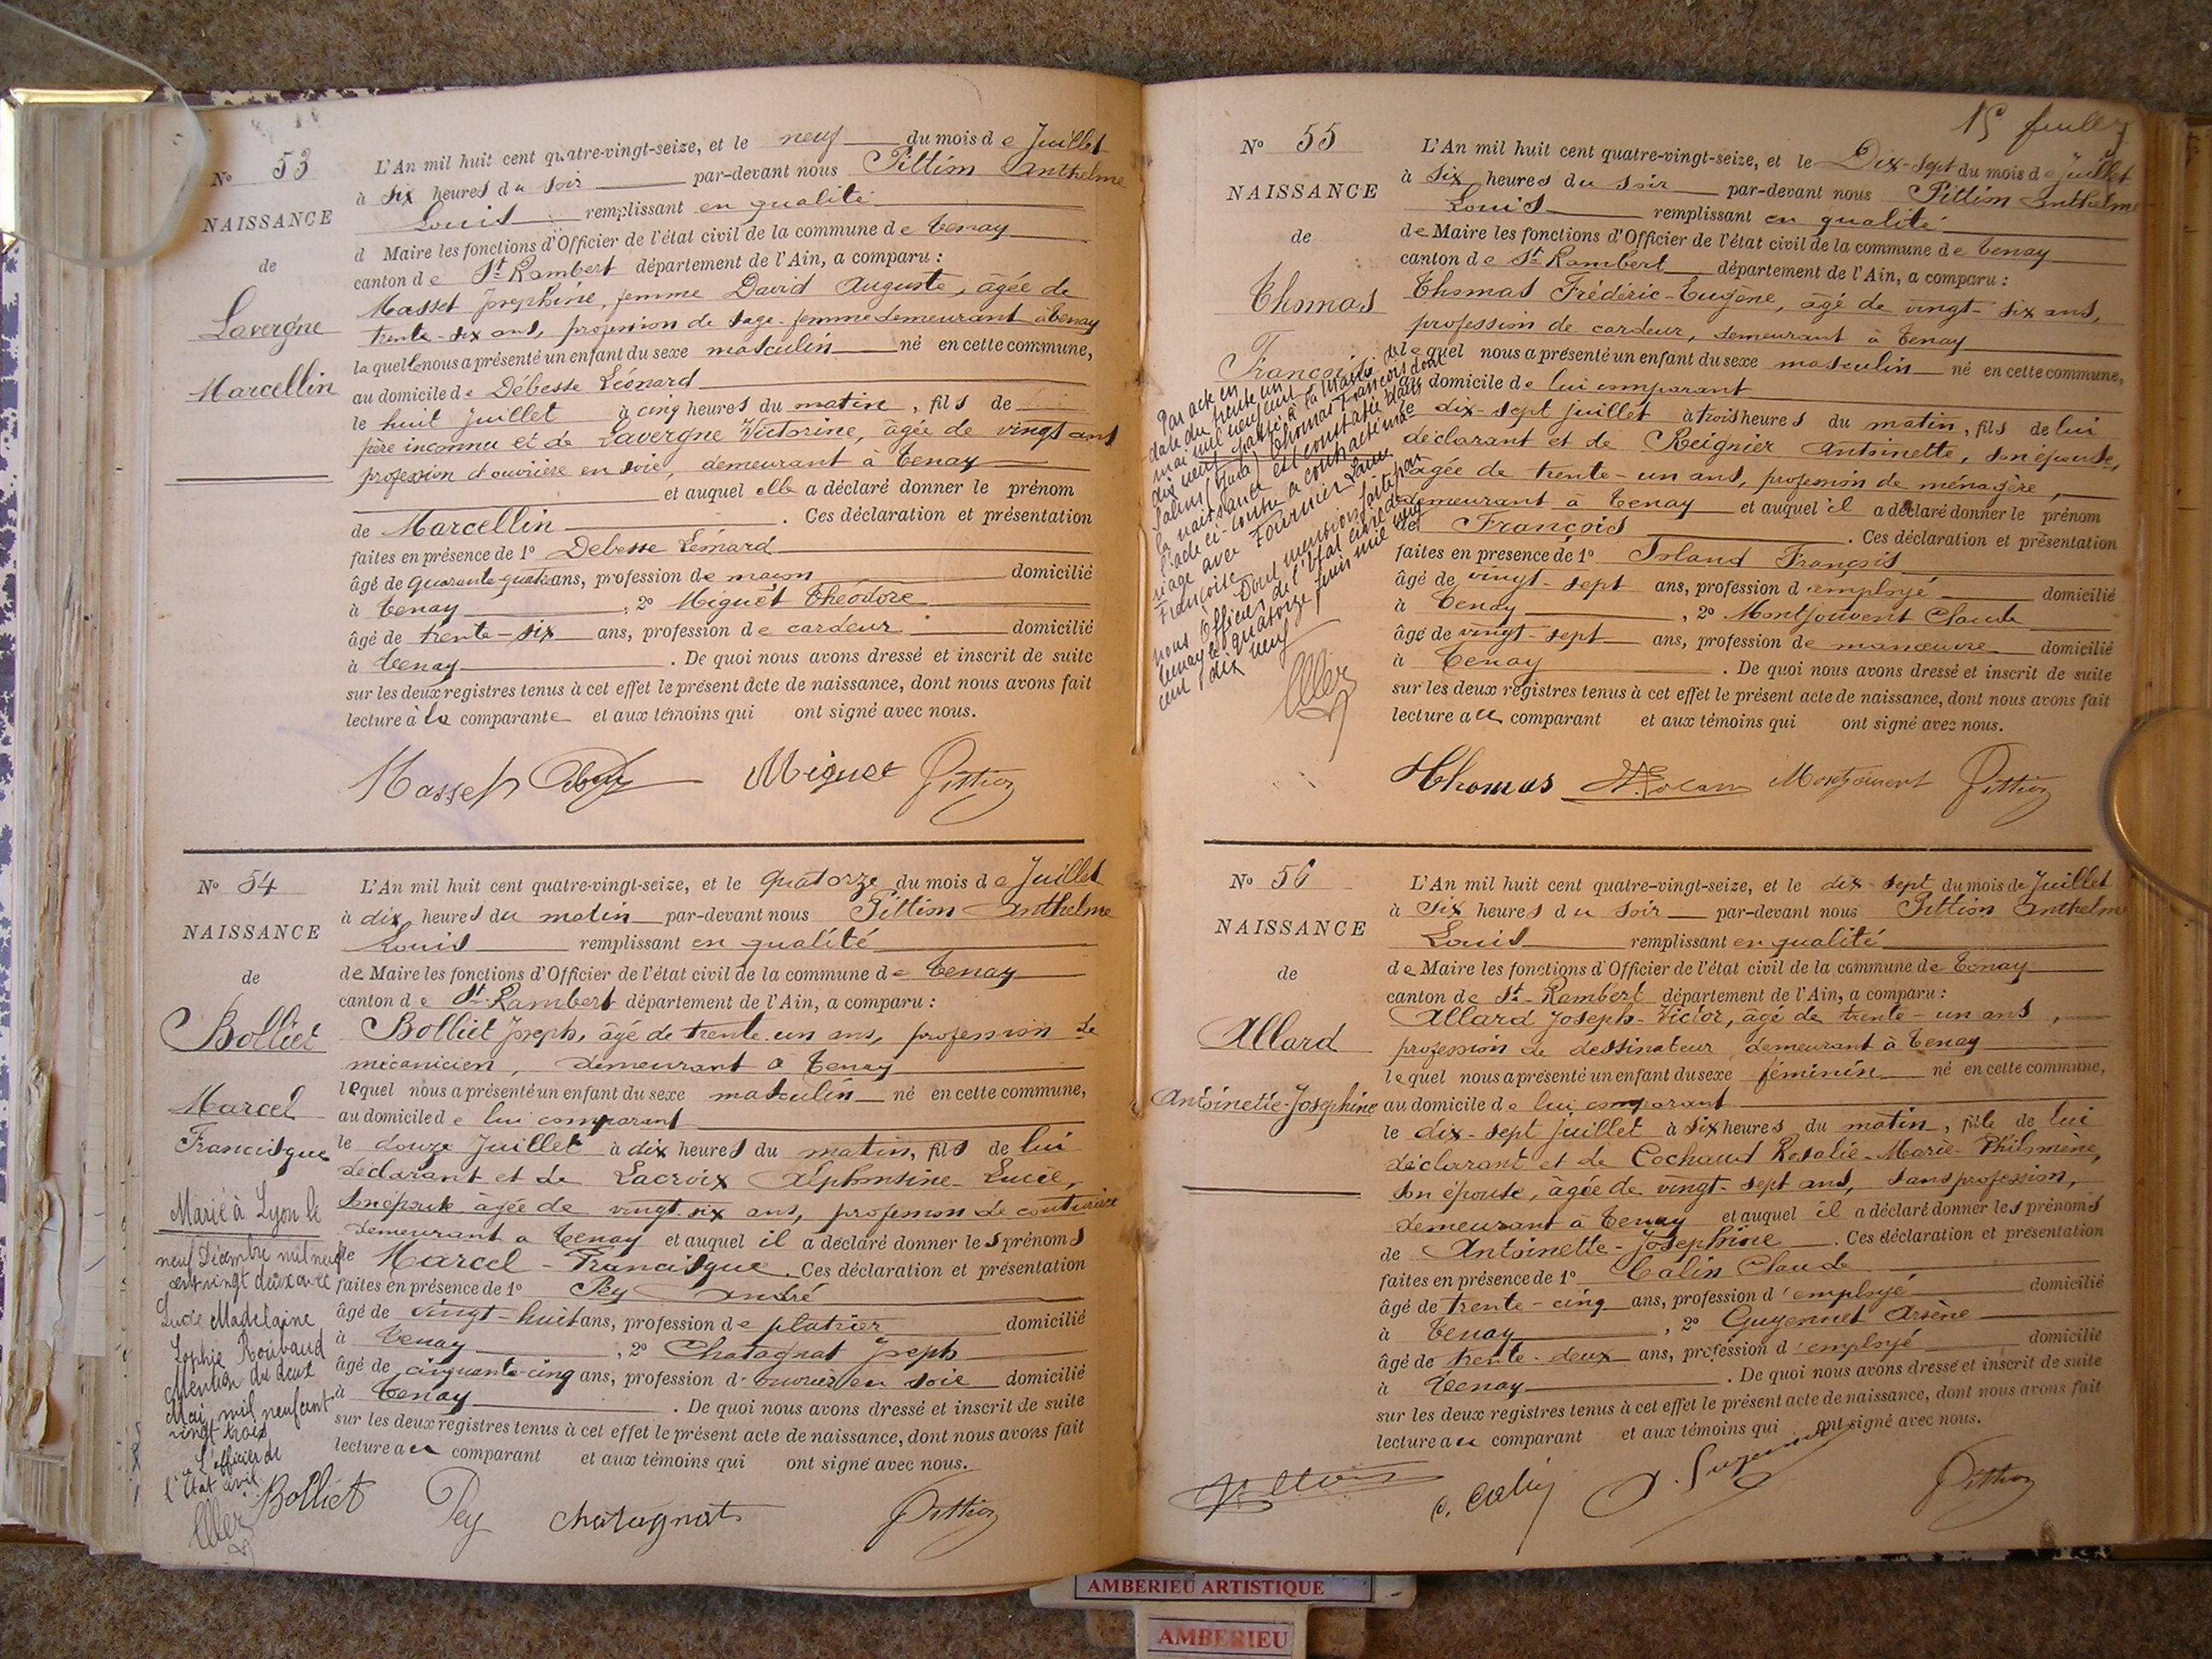 N° 53
NAISSANCE
de
Lavergne
Marcellin
L'An mil huit cent quatre-vingt-seize, et le neuf du mois de Juillet
à six heures du soir par-devant nous Pittion Anthelme
Louis remplissant en qualité
d Maire les fonctions d'Officier de l'état civil de la commune de Tenay
canton de St Rambert département de l'Ain, a comparu :
Masset Josephine, femme David Auguste, âgée de
trente-six ans, profession de sage-femme demeurant à Tenay
laquelle nous a présenté un enfant du sexe masculin né en cette commune,
au domicile de Débesse Léonard
le huit Juillet à cinq heures du matin, fils de
père inconnu et de Lavergne Victorine, âgée de vingt ans
profession d'ouvrière en soie, demeurant à Tenay
et auquel elle a déclaré donner le prénom
de Marcellin . Ces déclaration et présentation
faites en présence de 1° Debesse Léonard
âgé de quarante-quatre ans, profession de maçon domicilié
à Tenay , 2° Miguet Théodore
âgé de trente-six ans, profession de cardeur domicilié
à Tenay . De quoi nous avons dressé et inscrit de suite
sur les deux registres tenus à cet effet le présent acte de naissance, dont nous avons fait
lecture à la comparante et aux témoins qui ont signé avec nous.
Masset Miguet Pittion
N° 54
NAISSANCE
de
Bolliet
Marcel
Francisque
Marié à Lyon le
neuf Décembre mil neuf
cent vingt deux avec
Lucie Madelaine
Sophie Roubaud
Mention du deux
Mai mil neuf cent
vingt trois
L'officier de
l'État civil
L'An mil huit cent quatre-vingt-seize, et le quatorze du mois de Juillet
à dix heures du matin par-devant nous Pittion Anthelme
Louis remplissant en qualité
de Maire les fonctions d'Officier de l'état civil de la commune de Tenay
canton de St-Rambert département de l'Ain, a comparu :
Bolliet Joseph, âgé de trente-un ans, profession de
mécanicien, demeurant à Tenay
lequel nous a présenté un enfant du sexe masculin né en cette commune,
au domicile de lui comparant
le douze Juillet à dix heures du matin, fils de lui
déclarant et de Lacroix Alphonsine-Lucie,
son épouse âgée de vingt-six ans, profession de couturière
demeurant à Tenay et auquel il a déclaré donner les prénoms
de Marcel-Francisque . Ces déclaration et présentation
faites en présence de 1° Pey André
âgé de vingt-huit ans, profession de platrier domicilié
à Tenay , 2° Chatagnat Joseph
âgé de cinquante-cinq ans, profession d'ouvrier en soie domicilié
à Tenay . De quoi nous avons dressé et inscrit de suite
sur les deux registres tenus à cet effet le présent acte de naissance, dont nous avons fait
lecture au comparant et aux témoins qui ont signé avec nous.
Bolliet Pey Chatagnat Pittion
15 Juillet
N° 55
NAISSANCE
de
Thomas
François
Par acte en
date du trente un
mai mil neuf cent
dix neuf, passé à la Mairie de
Salins (Jura) Thomas François dont
la naissance est constatée dans
l'acte ci-contre a contracté ma-
riage avec Fournier Laure
Françoise
Dont mention faite par
nous Officier de l'État civil de
Tenay le quatorze Juin mil neuf
cent dix neuf
L'An mil huit cent quatre-vingt-seize, et le Dix-sept du mois de Juillet
à six heures du soir par-devant nous Pittion Anthelme
Louis remplissant en qualité
de Maire les fonctions d'Officier de l'état civil de la commune de Tenay
canton de St Rambert département de l'Ain, a comparu :
Thomas Frédéric-Eugène, âgé de vingt-six ans,
profession de cardeur, demeurant à Tenay
lequel nous a présenté un enfant du sexe masculin né en cette commune,
au domicile de lui comparant
le dix-sept Juillet à trois heures du matin, fils de lui
déclarant et de Reignier Antoinette, son épouse,
âgée de trente-un ans, profession de ménagère,
demeurant à Tenay et auquel il a déclaré donner le prénom
de François . Ces déclaration et présentation
faites en présence de 1° François
âgé de vingt-sept ans, profession d'employé domicilié
à Tenay , 2° Montjouvent Claude
âgé de vingt-sept ans, profession de manœuvre domicilié
à Tenay . De quoi nous avons dressé et inscrit de suite
sur les deux registres tenus à cet effet le présent acte de naissance, dont nous avons fait
lecture au comparant et aux témoins qui ont signé avec nous.
Thomas Montjouvent Pittion
N° 56
NAISSANCE
de
Allard
Antoinette-Josephine
L'An mil huit cent quatre-vingt-seize, et le dix-sept du mois de Juillet
à six heures du soir par-devant nous Pittion Anthelme
Louis remplissant en qualité
de Maire les fonctions d'Officier de l'état civil de la commune de Tenay
canton de St-Rambert département de l'Ain, a comparu :
Allard Joseph-Victor, âgé de trente-un ans,
profession de dessinateur demeurant à Tenay
lequel nous a présenté un enfant du sexe féminin né en cette commune,
au domicile de lui comparant
le dix-sept Juillet à six heures du matin, fille de lui
déclarant et de Cochaud Rosalie-Marie-Philomène,
son épouse, âgée de vingt-sept ans, sans profession,
demeurant à Tenay et auquel il a déclaré donner les prénoms
de Antoinette-Josephine . Ces déclaration et présentation
faites en présence de 1° Calin Claude
âgé de trente-cinq ans, profession d'employé domicilié
à Tenay , 2° Guyennet Arsène
âgé de trente-deux ans, profession d'employé domicilié
à Tenay . De quoi nous avons dressé et inscrit de suite
sur les deux registres tenus à cet effet le présent acte de naissance, dont nous avons fait
lecture au comparant et aux témoins qui ont signé avec nous.
C. Calin Pittion
AMBERIEU ARTISTIQUE
AMBERIEU